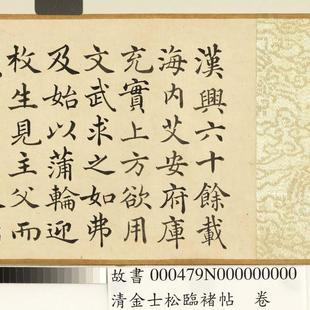 漢興六十餘載
海內艾安府庫
充實上方欲用
文武求之如弗
及始以蒲輪迎
枚生見主父而
故書 000479N000000000
清金士松臨褚帖 卷